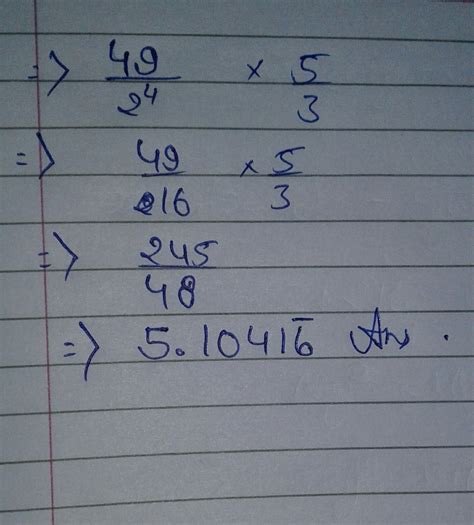 => 49/2⁴ × 5/3
=> 49/16 × 5/3
=> 245/48
=> 5.10416̅ Ans.